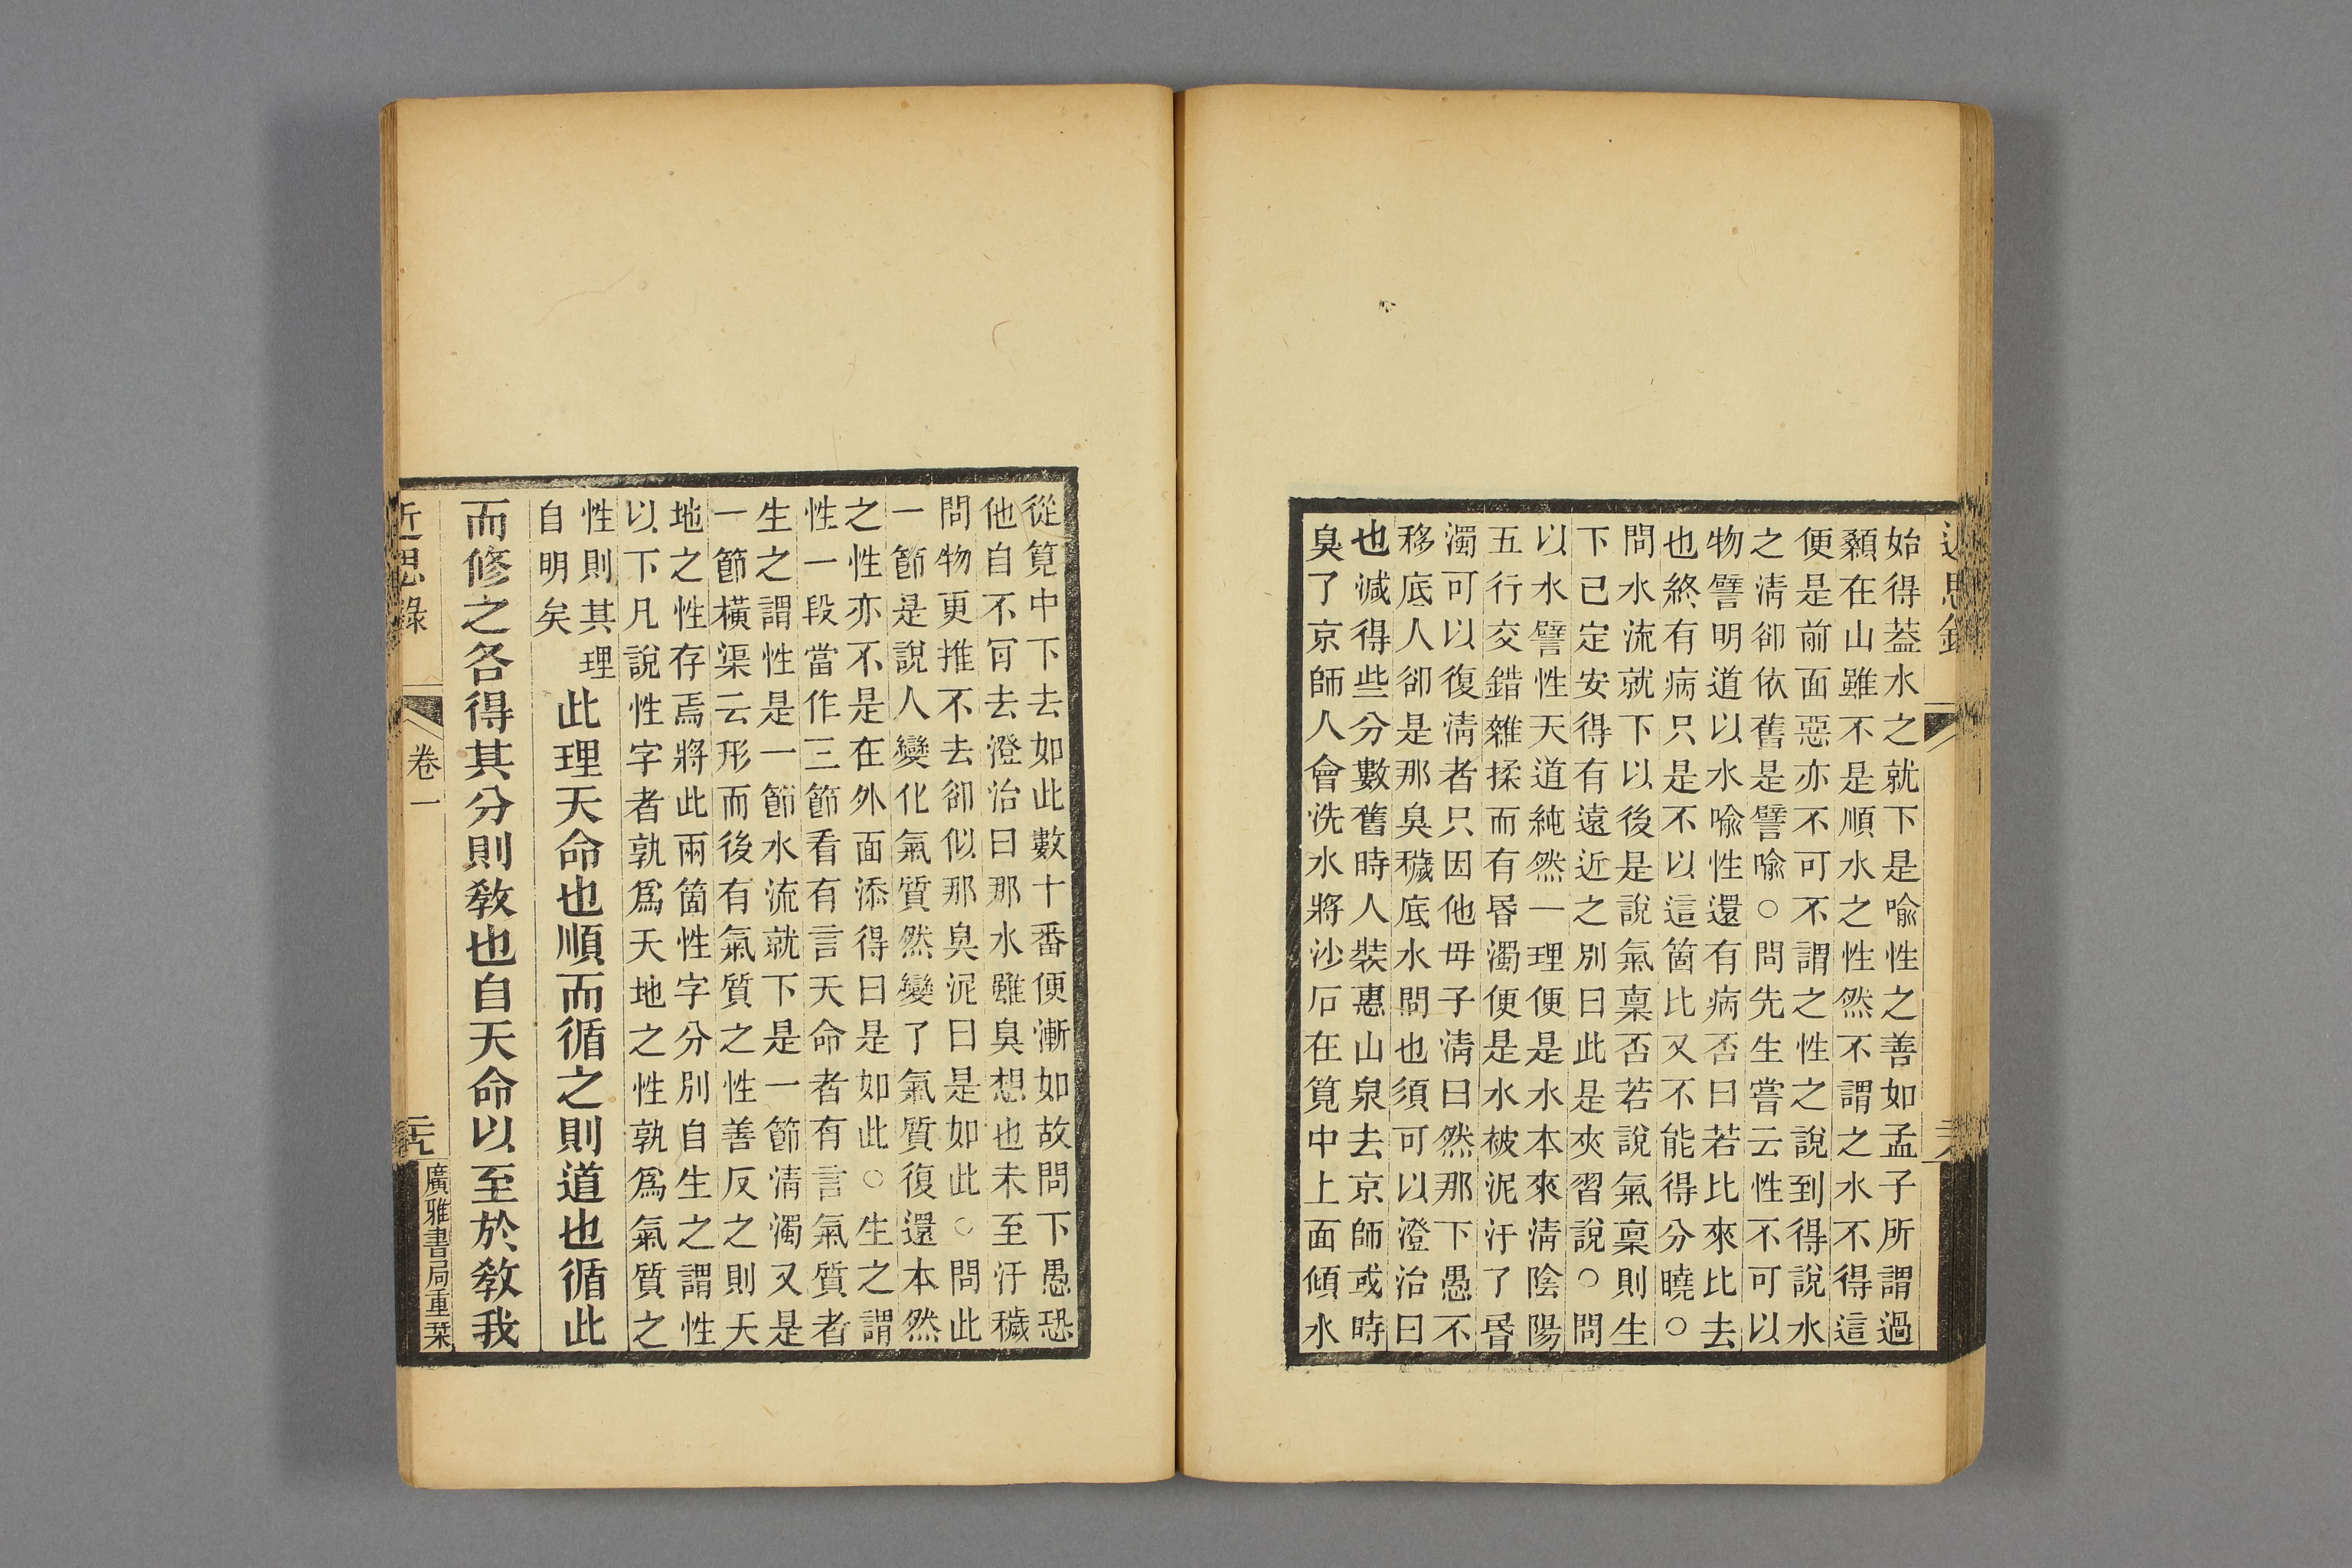 始得葢水之就下是喩性之善如孟子所謂過
顙在山雖不是順水之性然不謂之水不得這
便是前面惡亦不可不謂之性之說到得說水
之淸卻依舊是譬喩○問先生嘗云性不可以
物譬明道以水喩性還有病否曰若比來比去
也終有病只是不以這箇比又不能得分曉○
問水流就下以後是說氣稟否若說氣稟則生
下已定安得有遠近之別曰此是夾習說○問
以水譬性天道純然一理便是水本來淸陰陽
五行交錯雜揉而有昬濁便是水被泥汙了昬
濁可以復淸者只因他母子淸曰然那下愚不
移底人卻是那臭穢底水問也須可以澄治曰
也減得些分數舊時人裝惠山泉去京師或時
臭了京師人會洗水將沙石在筧中上面傾水
從筧中下去如此數十番便漸如故問下愚恐
他自不肎去澄治曰那水雖臭想也未至汙穢
問物更推不去卻似那臭泥曰是如此○問此
一節是說人變化氣質然變了氣質復還本然
之性亦不是在外面添得曰是如此○生之謂
性一段當作三節看有言天命者有言氣質者
生之謂性是一節水流就下是一節淸濁又是
一節橫渠云形而後有氣質之性善反之則天
地之性存焉將此兩箇性字分別自生之謂性
以下凡說性字者孰爲天地之性孰爲氣質之
性則其理
自明矣
此理天命也順而循之則道也循此
而修之各得其分則敎也自天命以至於敎我
近思錄
卷一
廣雅書局重栞